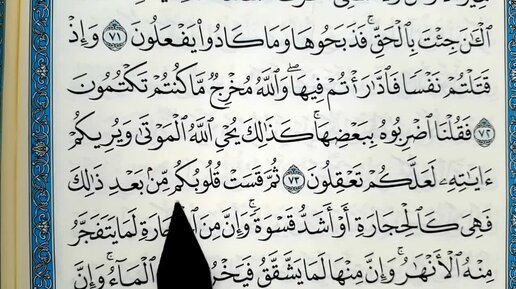 ٱلْـَٰٔنَ جِئْتَ بِٱلْحَقِّ ۚ فَذَبَحُوهَا وَمَا كَادُوا۟ يَفْعَلُونَ ٧١ وَإِذْ
قَتَلْتُمْ نَفْسًا فَٱدَّٰرَْٰٔتُمْ فِيهَا ۖ وَٱللَّهُ مُخْرِجٌ مَّا كُنتُمْ تَكْتُمُونَ
٧٢ فَقُلْنَا ٱضْرِبُوهُ بِبَعْضِهَا ۚ كَذَٰلِكَ يُحْىِ ٱللَّهُ ٱلْمَوْتَىٰ وَيُرِيكُمْ
ءَايَٰتِهِۦ لَعَلَّكُمْ تَعْقِلُونَ ٧٣ ثُمَّ قَسَتْ قُلُوبُكُم مِّنۢ بَعْدِ ذَٰلِكَ
فَهِىَ كَٱلْحِجَارَةِ أَوْ أَشَدُّ قَسْوَةً ۚ وَإِنَّ مِنَ لَمَا يَتَفَجَّرُ
مِنْهُ ٱلْأَنْهَٰرُ ۚ وَإِنَّ مِنْهَا لَمَا يَشَّقَّقُ ٱلْمَآءُ ۚ وَإِنَّ